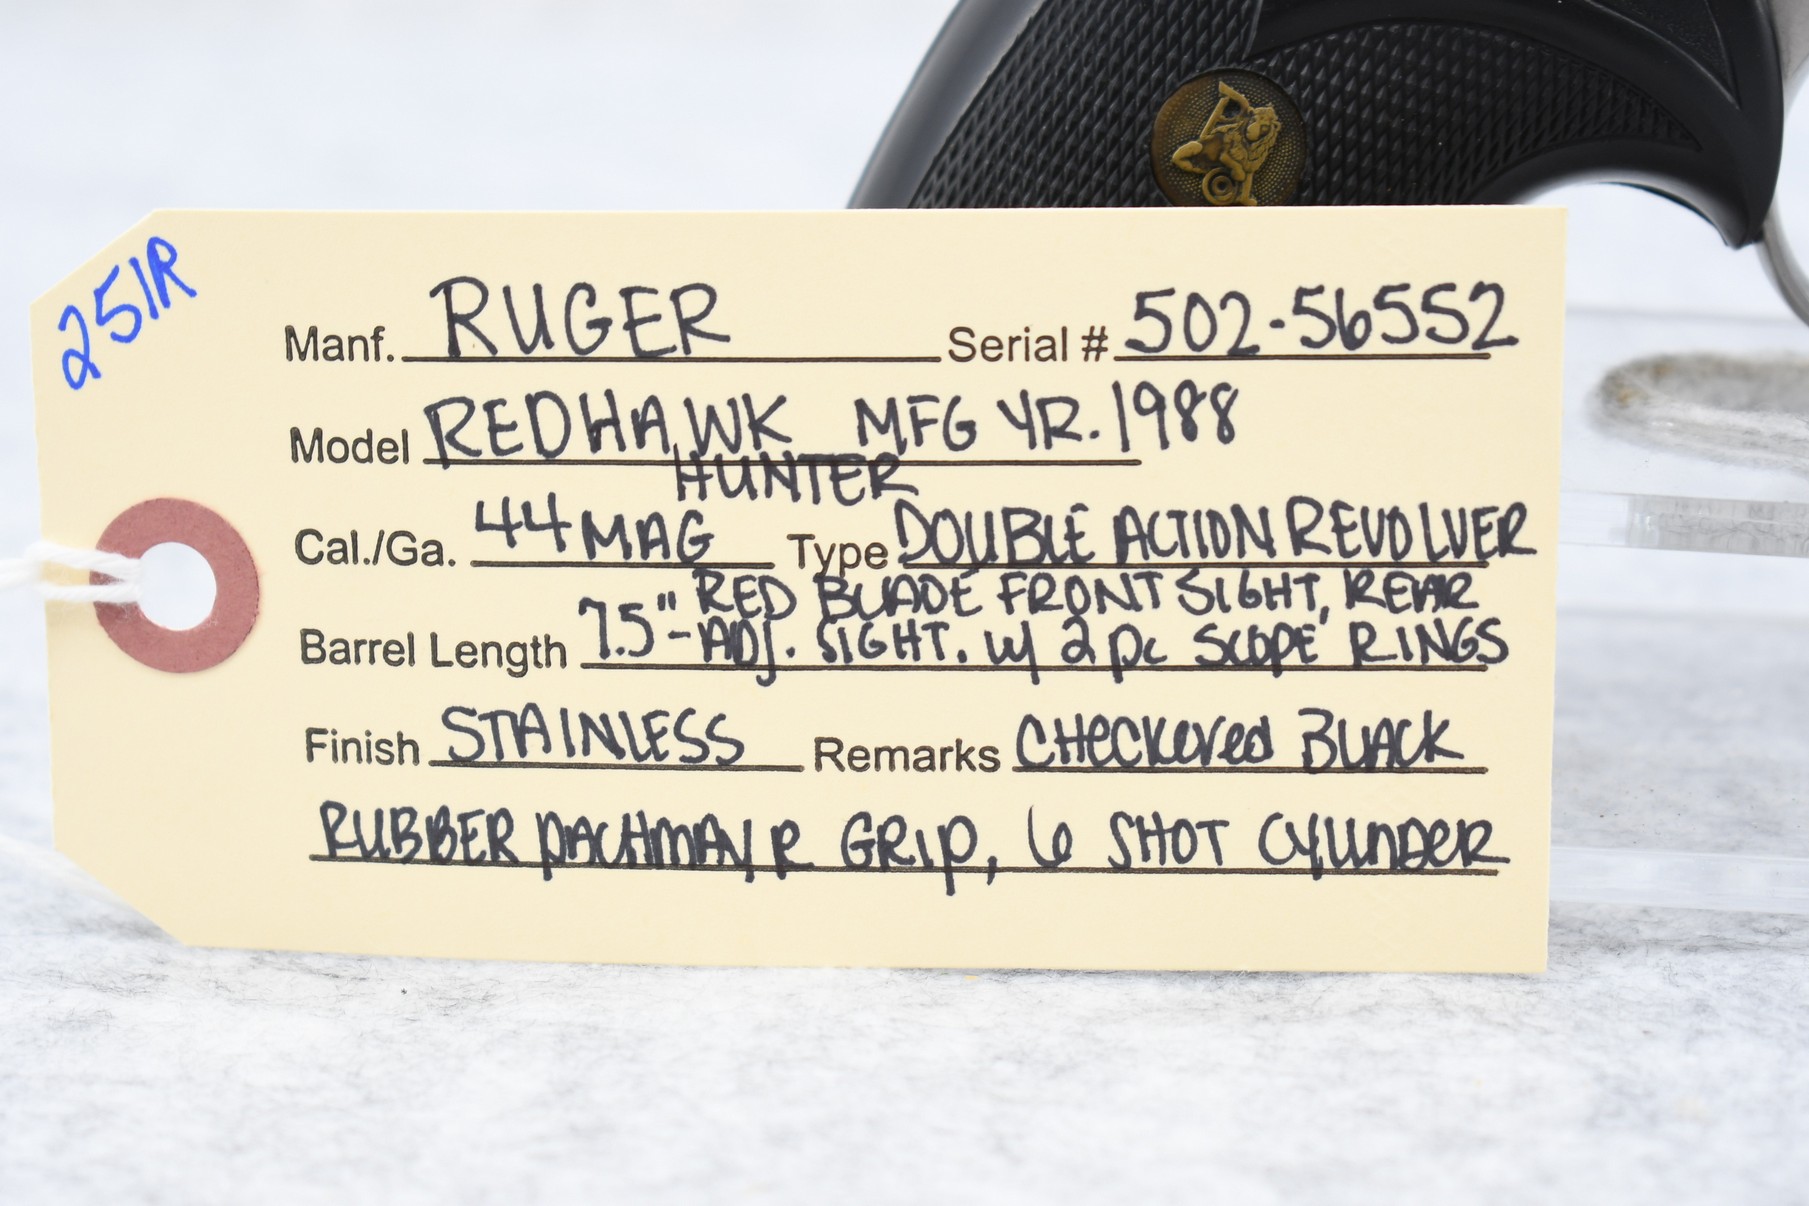 251R
Manf. RUGER Serial # 502-56552
Model REDHAWK MFG YR. 1988
HUNTER
Cal./Ga. 44 MAG Type DOUBLE ACTION REVOLVER
RED BLADE FRONT SIGHT, REAR
Barrel Length 7.5" - ADJ. SIGHT. W/ 2 pc SCOPE RINGS
Finish STAINLESS Remarks CHECKered BLACK
RUBBER PACHMAYR GRIP, 6 SHOT CYLINDER